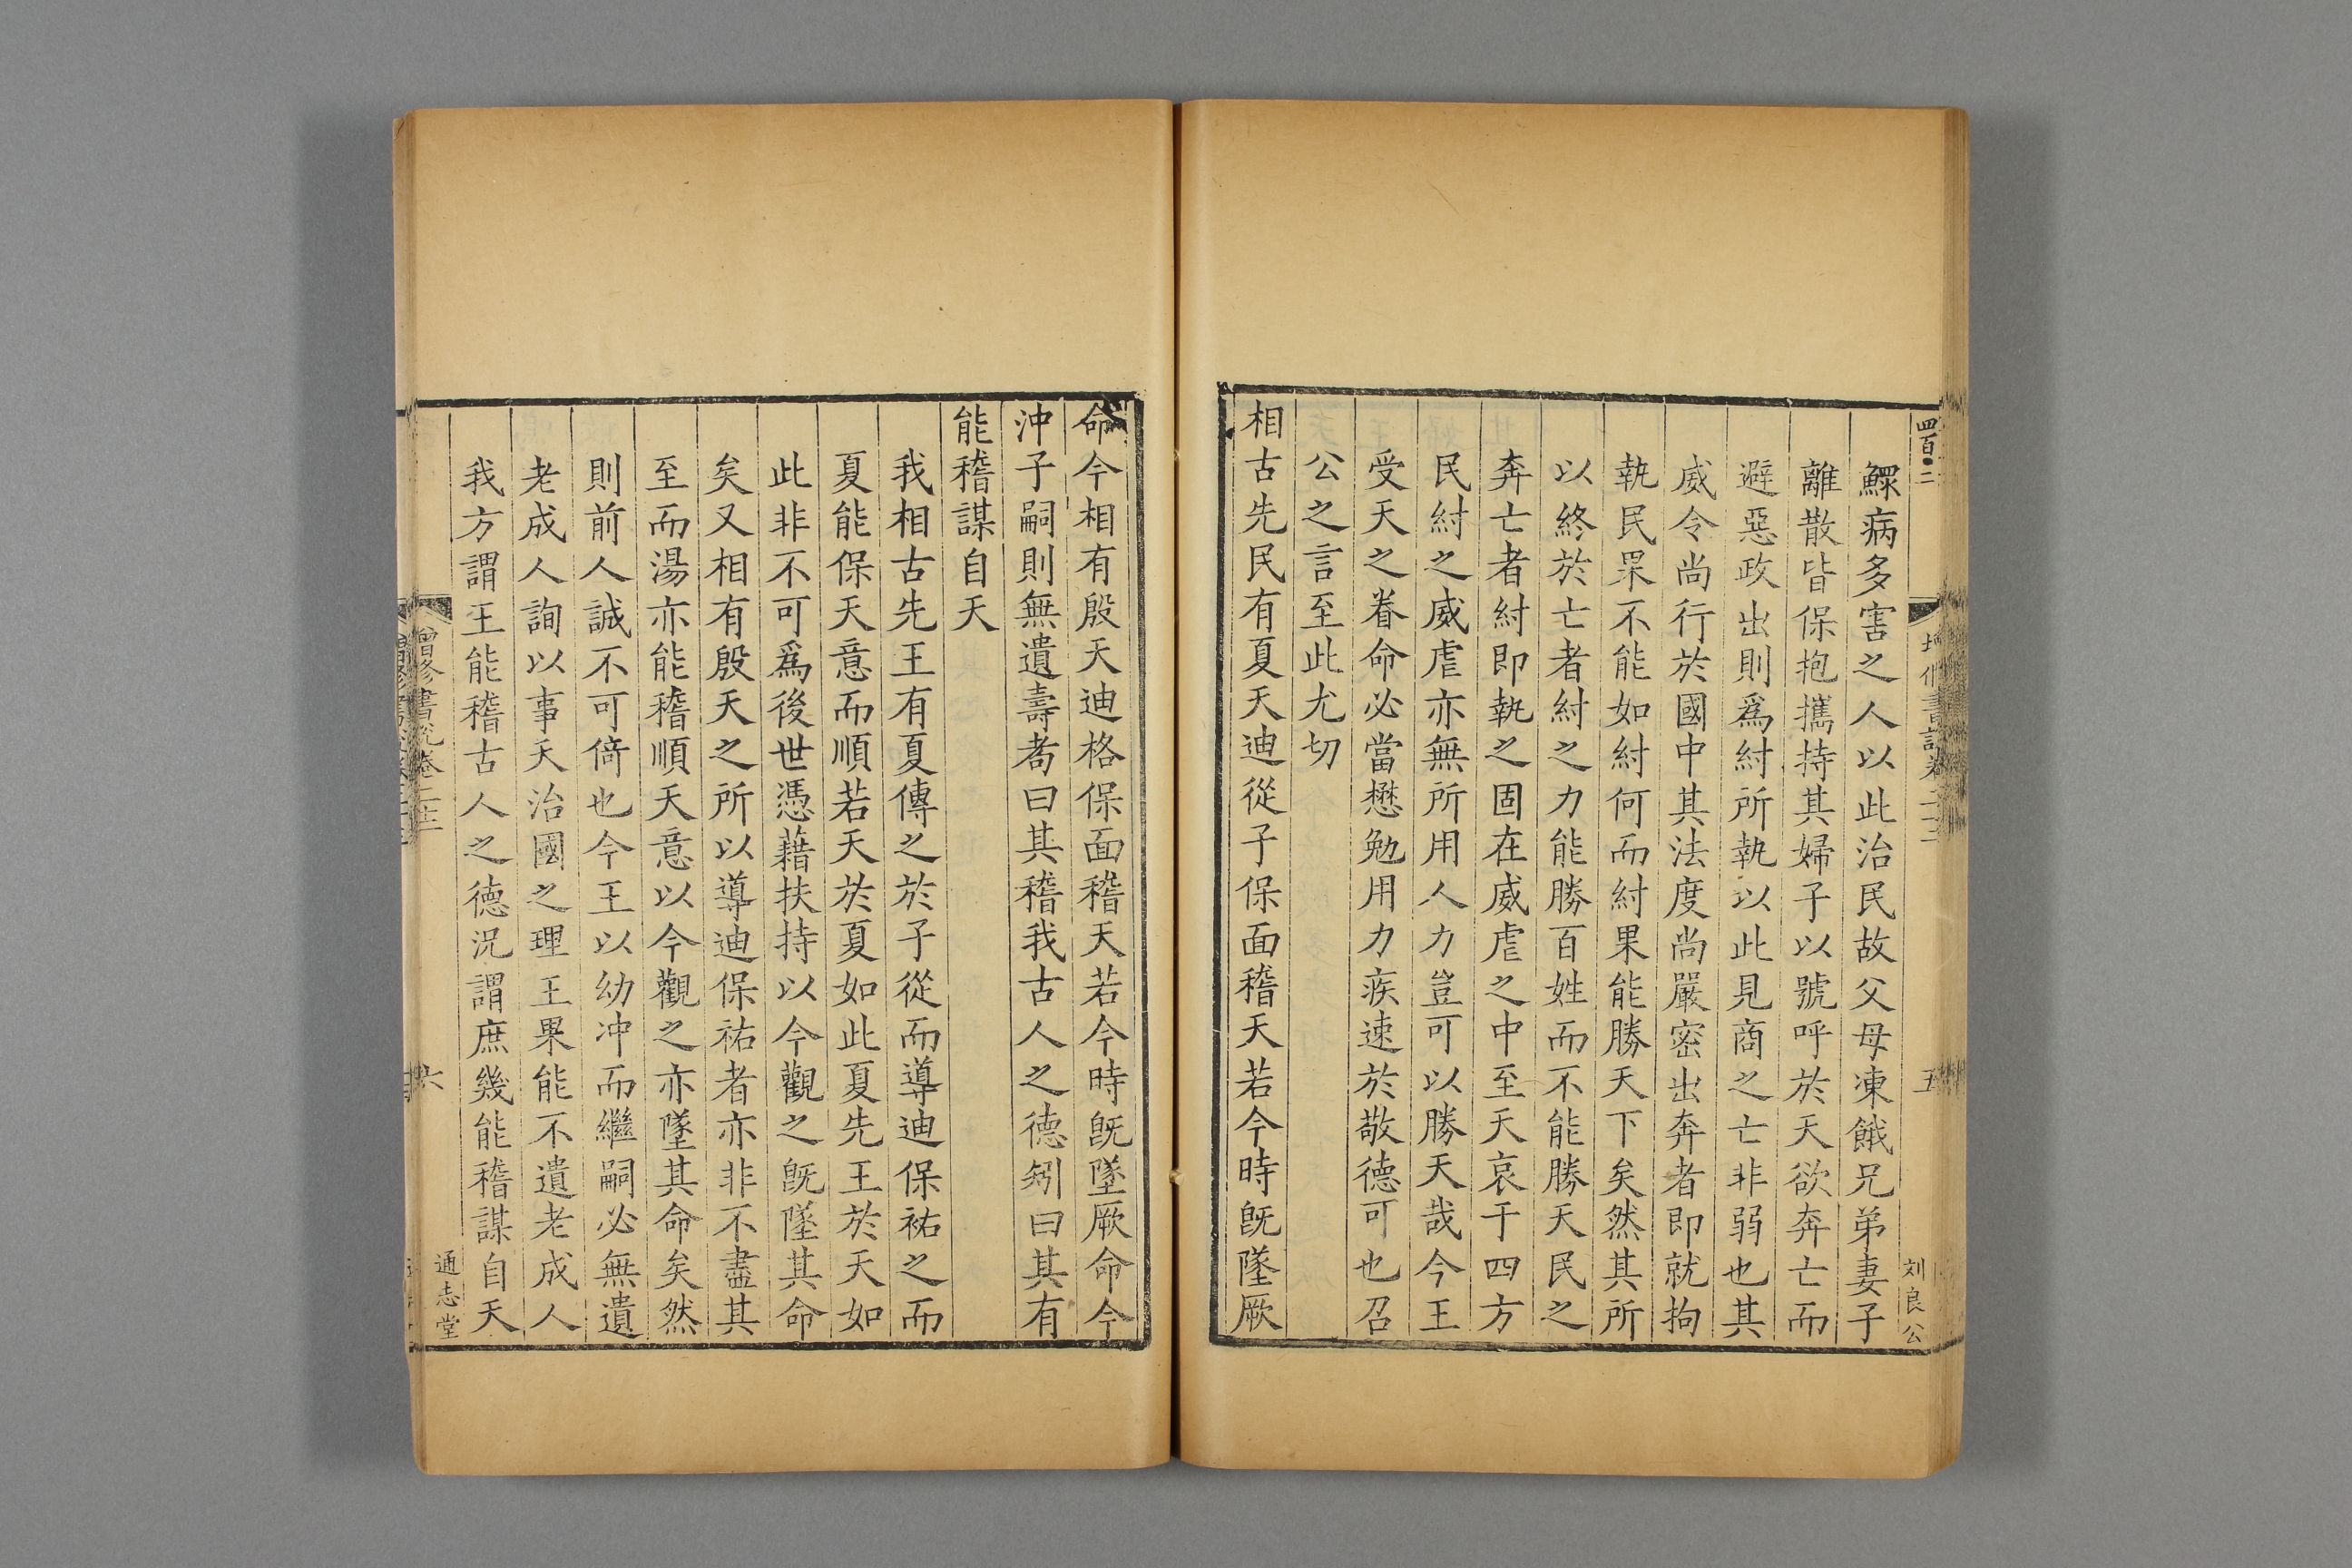 四百二
增修書說卷二十二
五
刘良公
鰥病多害之人以此治民故父母凍餓兄弟妻子
離散皆保抱攜持其婦子以號呼於天欲奔亡而
避惡政出則爲紂所執以此見商之亡非弱也其
威令尚行於國中其法度尚嚴密出奔者即就拘
執民罘不能如紂何而紂果能勝天下矣然其所
以終於亡者紂之力能勝百姓而不能勝天民之
奔亡者紂即執之固在威虐之中至天哀于四方
民紂之威虐亦無所用人力豈可以勝天哉今王
受天之眷命必當懋勉用力疾速於敬德可也召
公之言至此尤切
相古先民有夏天迪從子保面稽天若今時旣墜厥
命今相有殷天迪格保面稽天若今時旣墜厥命今
沖子嗣則無遺壽耇曰其稽我古人之德矧曰其有
能稽謀自天
我相古先王有夏傳之於子從而導迪保祐之而
夏能保天意而順若天於夏如此夏先王於天如
此非不可爲後世憑藉扶持以今觀之旣墜其命
矣又相有殷天之所以導迪保祐者亦非不盡其
至而湯亦能稽順天意以今觀之亦墜其命矣然
則前人誠不可倚也今王以幼沖而繼嗣必無遺
老成人詢以事天治國之理王果能不遺老成人
我方謂王能稽古人之德況謂庶幾能稽謀自天
增修書說卷二十二
六
通志堂